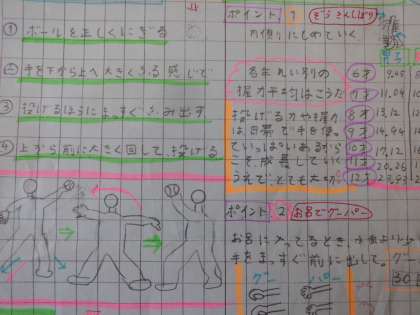 ① ボールを正しくにぎる
② 手を下から上へ大きくふる感じで
③ 投げるほうにまっすぐふみ出す
④ 上から前に大きく回して、投げる
ポイント 1 ぞうきんしぼり
方にしめていく
るねんれい別の
握力平均はこうだ
投げる力や握力
は日常で手を使っ
ていっぱいあるから
こそ成長していく
うえで、とても大切
6才
7才 11.04
8才 13.12
9才
10才 17.12
11才
12才
ポイント 2 お風呂でグーパー
お風呂に入ってるとき、
手をまっすぐ前に出して。グー
グー パー
30